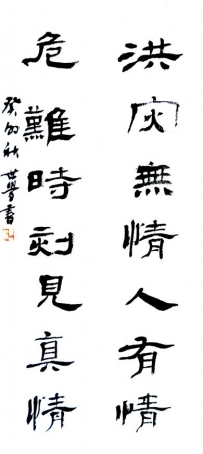 洪灾無情人有情
危難時刻見真情
癸卯秋世學書